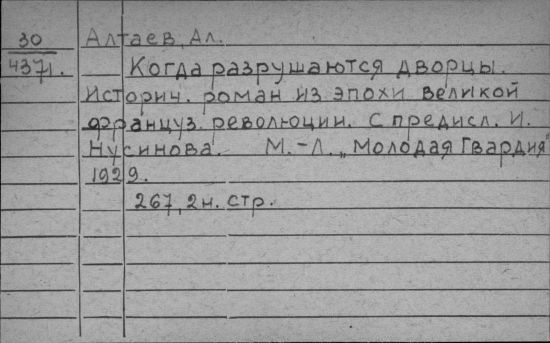 30 Алтаев, Ал.
4371. Когда разрушаются дворцы.
Историч. роман из эпохи великой
француз. революции. С предисл. И.
Нусинова. М.-Л. „Молодая Гвардия"
1929.
267, 2 н. стр.